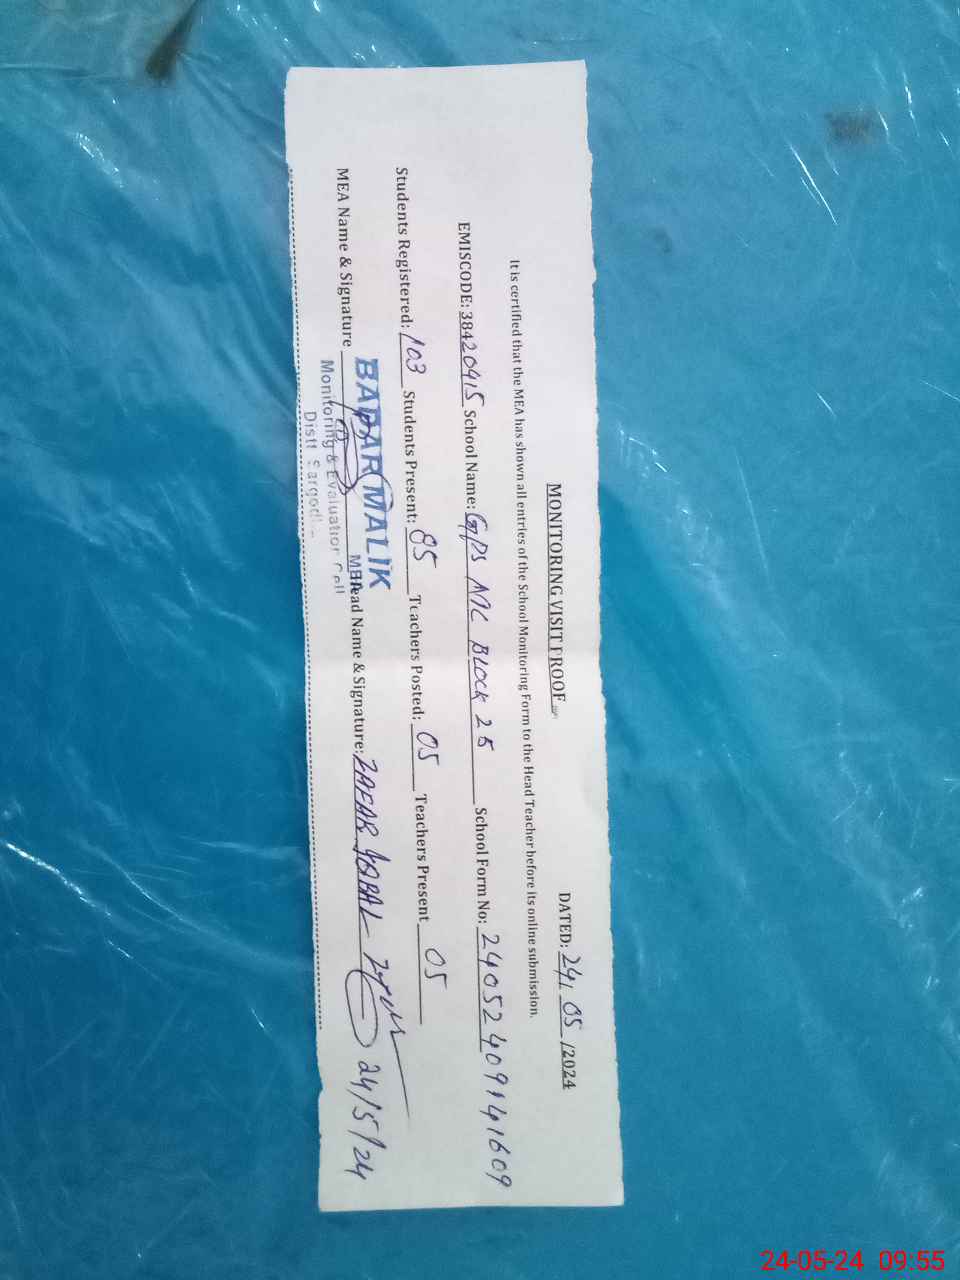 MONITORING VISIT PROOF
DATED: 24/ 05 /2024
It is certified that the MEA has shown all entries of the School Monitoring Form to the Head Teacher before its online submission.
EMISCODE: 38420415 School Name: GPS MC BLOCK 25 School Form No: 2405240914 1609
Students Registered: 103 Students Present: 85 Teachers Posted: 05 Teachers Present 05
MEA Name & Signature Head Name & Signature: ZAFAR IQBAL 24/5/24
BABAR MALIK
MEA
Monitoring & Evaluation Cell
Distt Sargodha
24-05-24 09:55